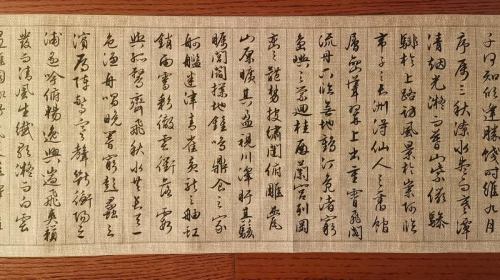 子何知躬逢勝餞時維九月
序屬三秋潦水盡而寒潭
清烟光凝而暮山紫儼驂
騑於上路訪風景於崇阿臨
帝子之長洲得仙人之舊館
層巒聳翠上出重霄飛閣
流丹下臨無地鶴汀鳧渚窮
島嶼之縈迴桂殿蘭宮列岡
巒之體勢披繡闥俯雕甍
山原曠其盈視川澤盱其駭
矚閭閻撲地鐘鳴鼎食之家
舸艦迷津青雀黃龍之舳虹
銷雨霽彩徹雲衢落霞
與孤鶩齊飛秋水共長天一
色漁舟唱晚響窮彭蠡之
濱雁陣驚寒聲斷衡陽之
浦遙吟俯暢逸興遄飛爽籟
發而清風生纖歌凝而白雲